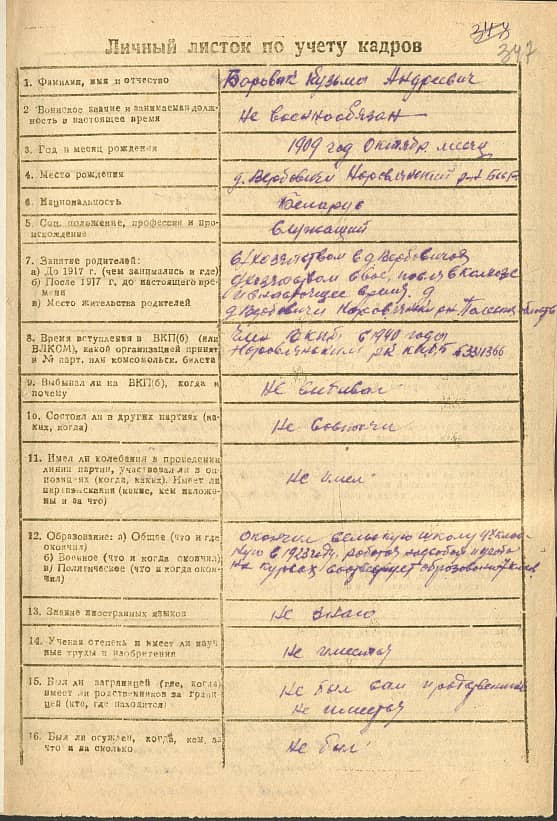 348
347
Личный листок по учету кадров
1. Фамилия, имя и отчество
Боровик Кузьма Андреевич
2 Воинское звание и занимаемая долж-
ность в настоящее время
Не военнообязан
3. Год и месяц рождения
1909 год Октябр. месяц
4. Место рождения
д. Вербовичи Наровлянский р-н БССР
4. Национальность
Беларус
5. Соц. положение, профессия и про-
исхождение
Служащий
7. Занятие родителей:
а) До 1917 г. (чем занимались и где)
б) После 1917 г. до настоящего вре-
мени
в) Место жительства родителей
с/хозяйством в д Вербовичах
с/хозяйством после в колхозе
и в настоящее время. д
д Вербовичи Наровлянский р-н Полесск. область
8. Время вступления в ВКП(б) (или
ВЛКСМ), какой организацией принят
и № парт. или комсомольск. билета
Член ВКПб с 1940 года
Наровлянским РК КПбБ
9. Выбывал ли из ВКП(б), когда и
почему
Не выбивал
10. Состоял ли в других партиях (ка-
ких, когда)
Не состоял
11. Имел ли колебания в проведении
линии партии, участвовал ли в оп-
позициях (когда, каких). Имеет ли
партвзыскания (какие, кем наложены
и за что)
Не имел
12. Образование: а) Общее (что и где
окончил)
б) Военное (что и когда окончил)
в) Политическое (что и когда окон-
чил)
Окончил сельскую школу 4 клас-
ную в 1923 году. работая над собой и учёба
на курсах
13. Знание иностранных языков
Не знаю
14. Ученая степень и имеет ли науч-
ные труды и изобретения
Не имеется
15. Был ли заграницей (где, когда)
имеет ли родственников за грани-
цей (кто, где находится)
Не был сам и родственников
не имеется
16. Был ли осужден, когда, кем, за
что и на сколько
Не был